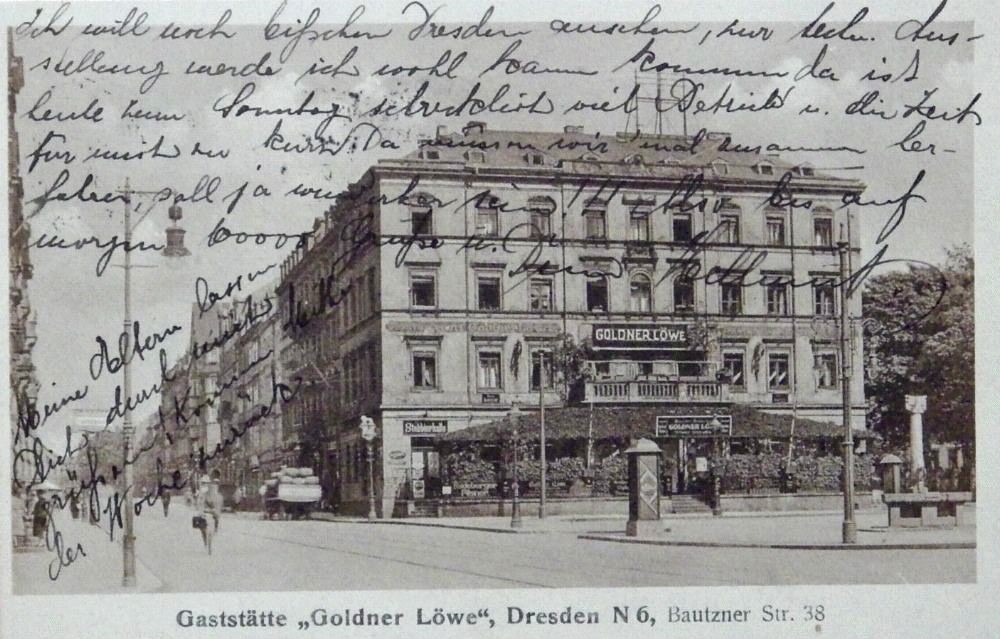 Ich will noch bißchen Dresden ansehen, zur techn. Aus-
stellung werde ich wohl kaum kommen da ist
heute zum Sonntag schrecklich viel Betrieb u. die Zeit
für mich zu kurz. Da müssen wir mal zusammen her-
fahren, soll ja wunderbar sein!!! Also bis auf
morgen 60000 Grüße u. Dein Hellmut
Meine Aeltern lassen
Dich durch mich
grüßen! Komme Mitte
der Woche zurück
GOLDNER LÖWE
Stübberhalle
GOLDNER LÖWE
Gaststätte „Goldner Löwe“, Dresden N 6, Bautzner Str. 38